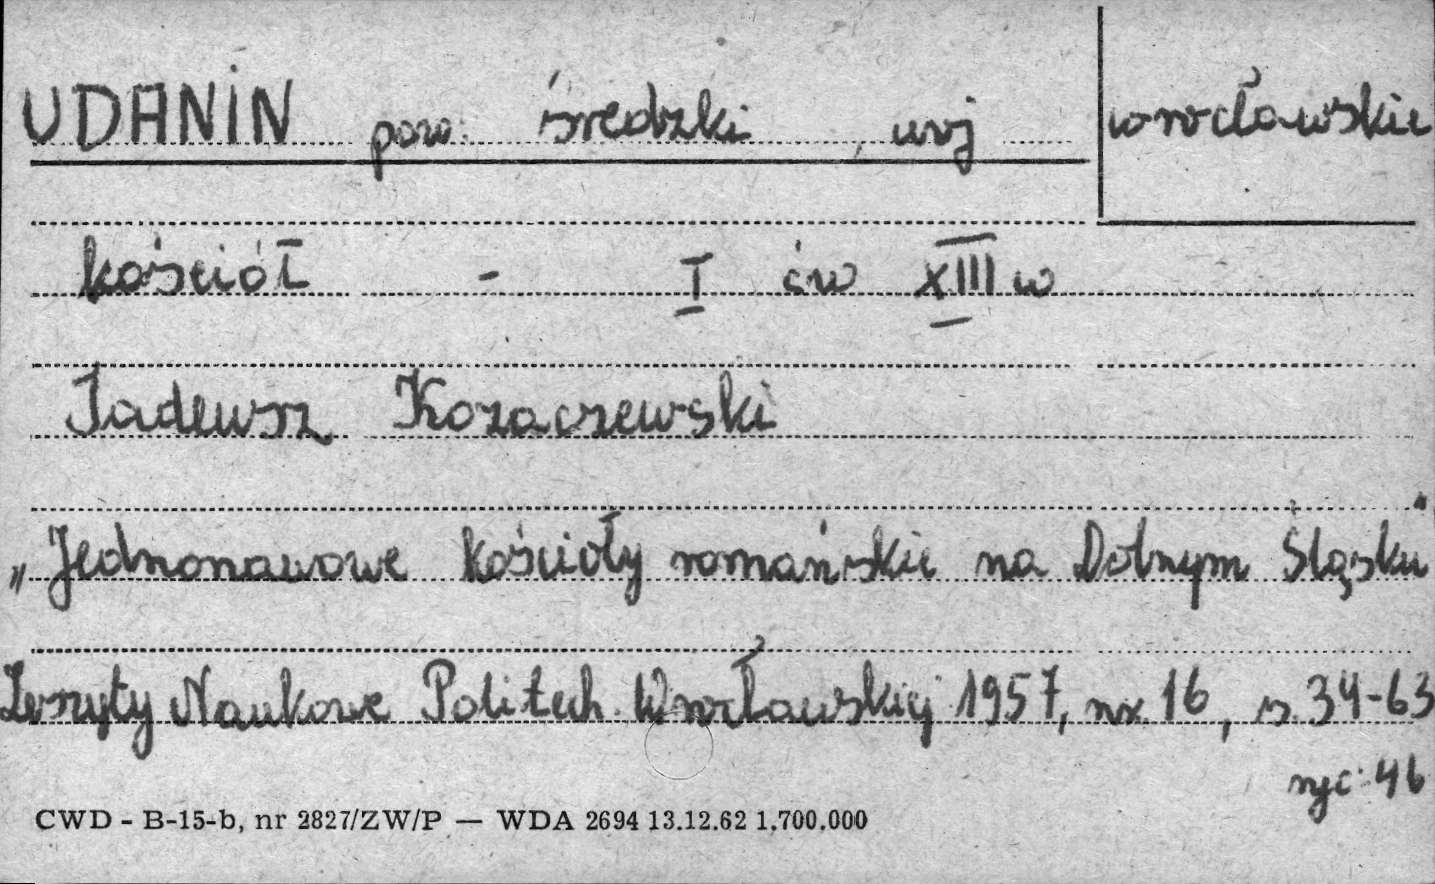 UDANIN pow. średzki, woj wrocławskie
kościół - I ćw XIII w
Tadeusz Kozaczewski
„Jednonawowe kościoły romańskie na Dolnym Śląsku"
Zeszyty Naukowe Politech. Wrocławskiej 1957, nr. 16, s. 34-63
ryc. 46
CWD - B-15-b, nr 2827/ZW/P — WDA 2694 13.12.62 1.700.000